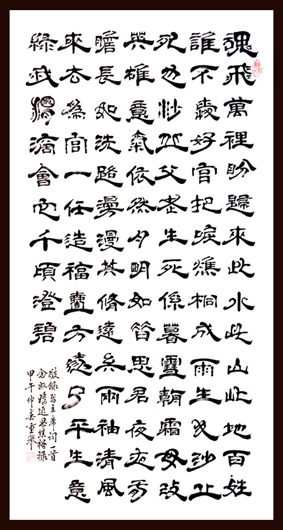 魂飛萬裡盼歸來此水此山此地百姓
誰不愛好官把淚焦桐成雨生也沙丘
死也沙丘父老生死係暮雪朝霜毋改
英雄意氣依然月明如昔思君夜夜肝
膽長如洗路漫漫其修遠矣兩袖清風
來去為官一任造福一方遂了平生意
綠我涓滴會它千頃澄碧
敬錄習主席詞一首
念奴嬌追思焦裕祿
甲午仲